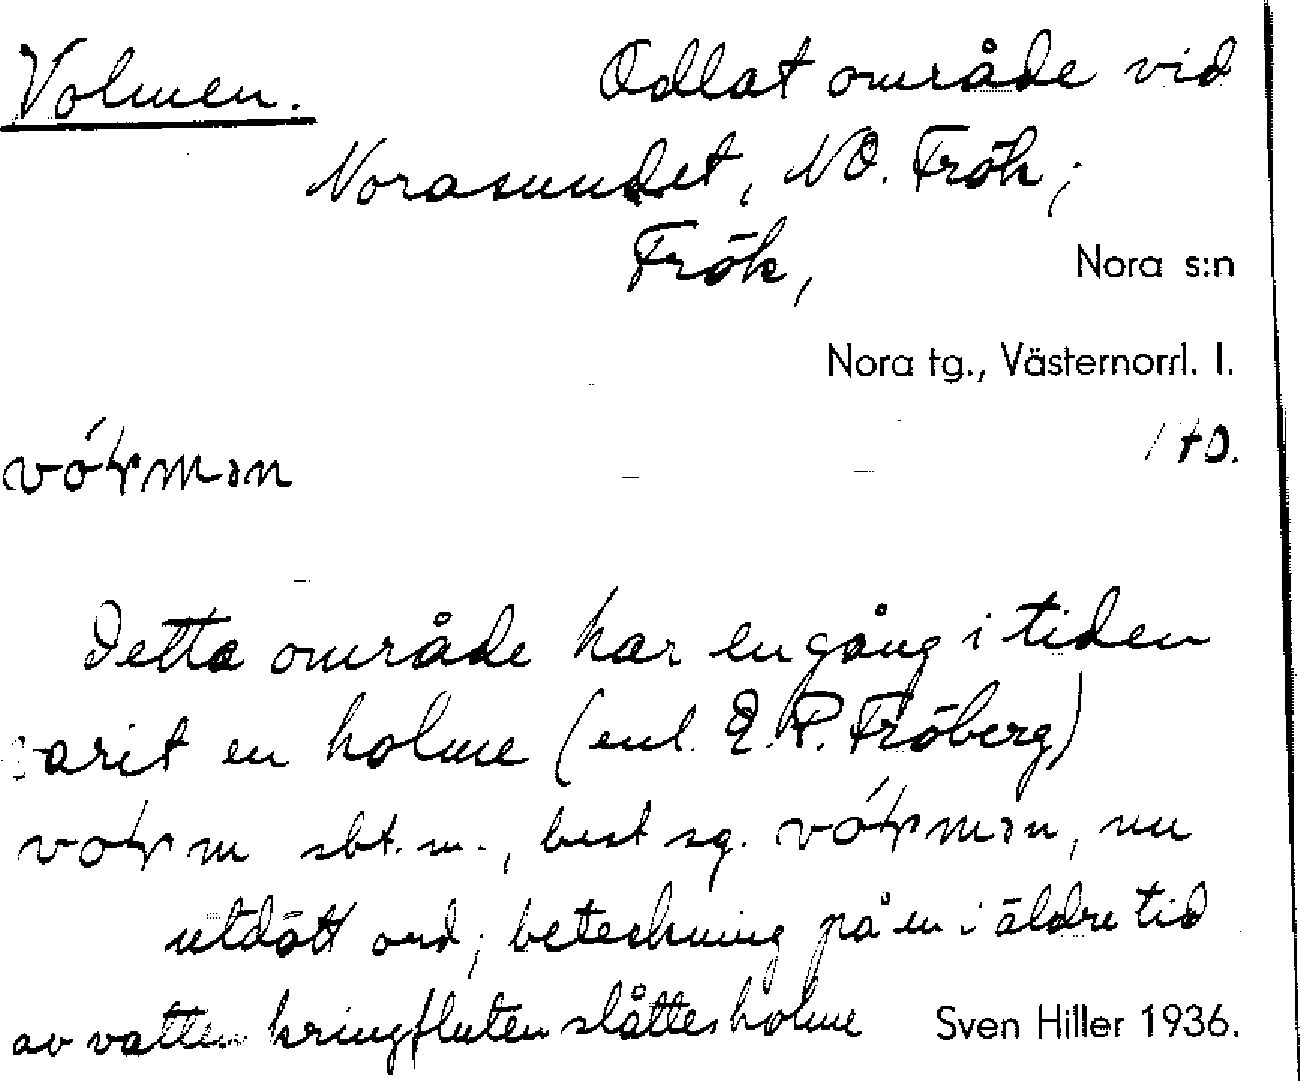 Volmen. Odlat område vid
Norasundet, NO. Frök;
Frök, Nora s:n
Nora tg., Västernorrl. l.
vóɽmən
Detta område har en gång i tiden
varit en holme (enl. E. P. Fröberg)
voɽm sbt. m., best sg. vóɽmən, nu
utdött ord; beteckning på en i äldre tid
av vatten kringfluten slåttesholme Sven Hiller 1936.